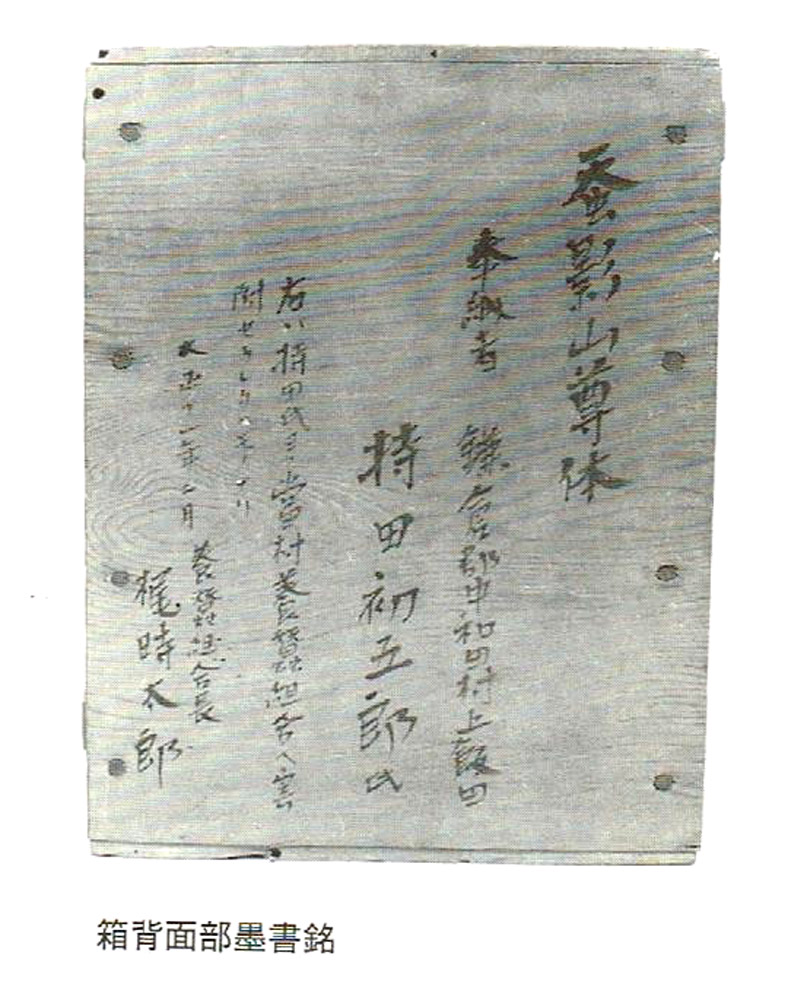 蚕影山尊体
奉納者 鎌倉郡中和田村上飯田
持田初五郎氏
右ハ持田氏ヨリ當村養蚕組合ヘ寄
附セラレタルモノナリ
大正十一年二月
養蚕組合長
梶時太郎
箱背面部墨書銘